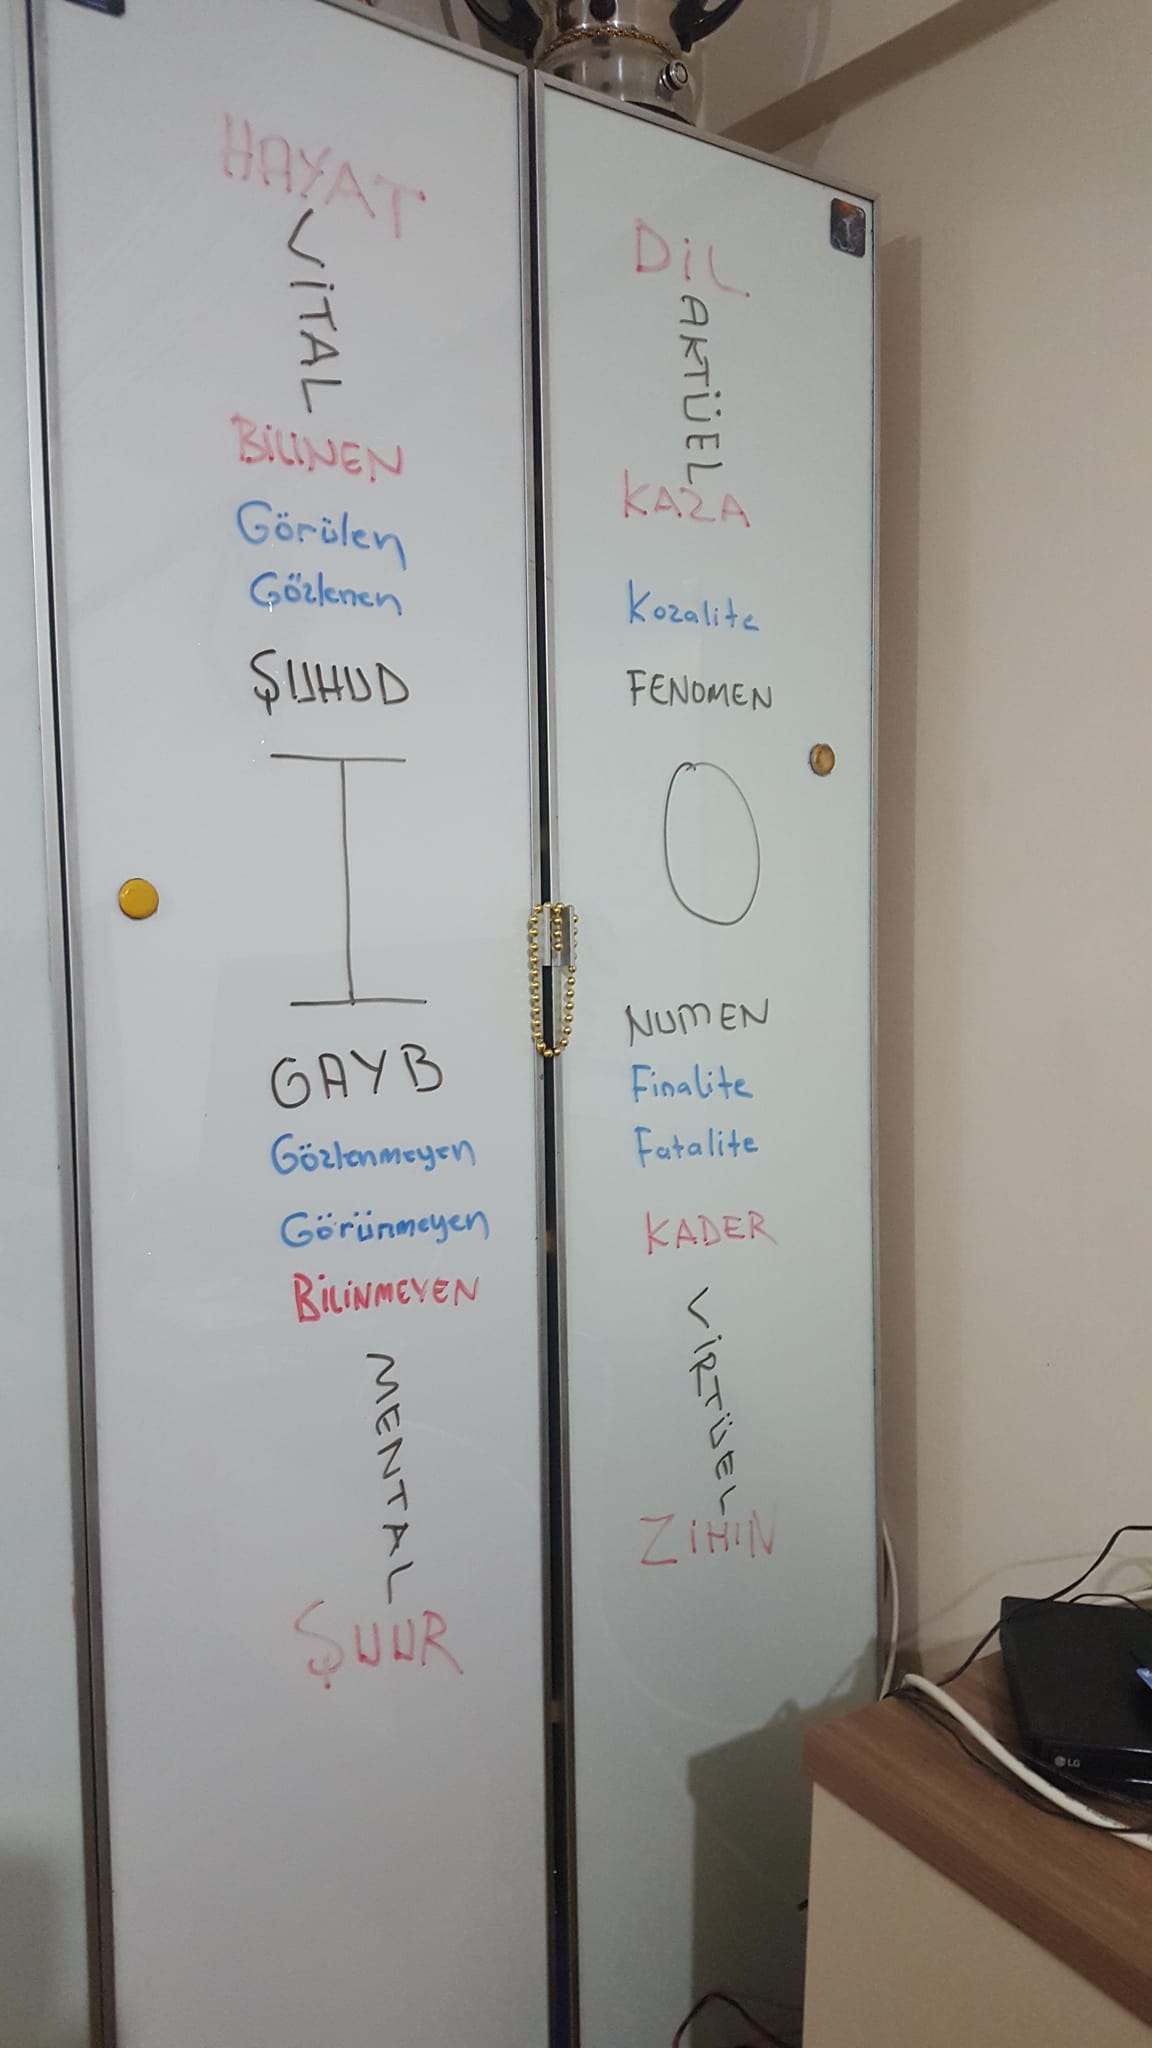 HAYAT
VİTAL
BİLİNEN
Görülen
Gözlenen
ŞUHUD
GAYB
Gözlenmeyen
Görünmeyen
BİLİNMEYEN
MENTAL
ŞUUR
DİL
AKTÜEL
KAZA
Kozalite
FENOMEN
NUMEN
Finalite
Fatalite
KADER
VİRTÜEL
ZİHİN
LG